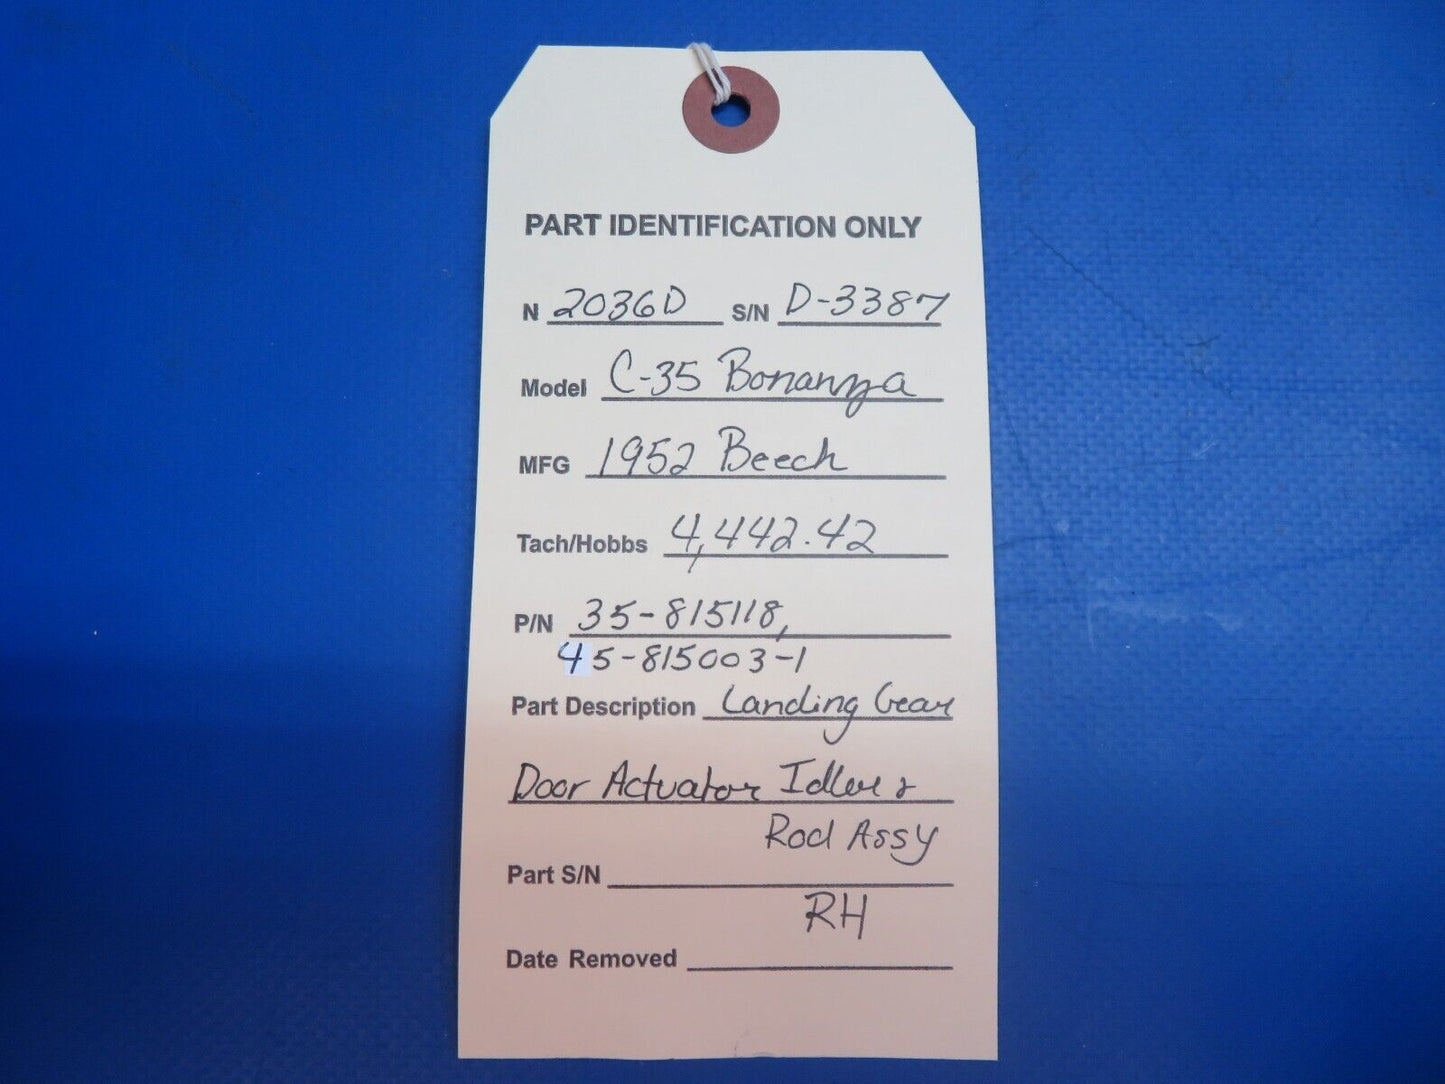 PART IDENTIFICATION ONLY
N 2036D S/N D-3387
Model C-35 Bonanza
MFG 1952 Beech
Tach/Hobbs 4,442.42
P/N 35-815118,
45-815003-1
Part Description Landing Gear
Door Actuator Idler &
Rod Assy
Part S/N
RH
Date Removed